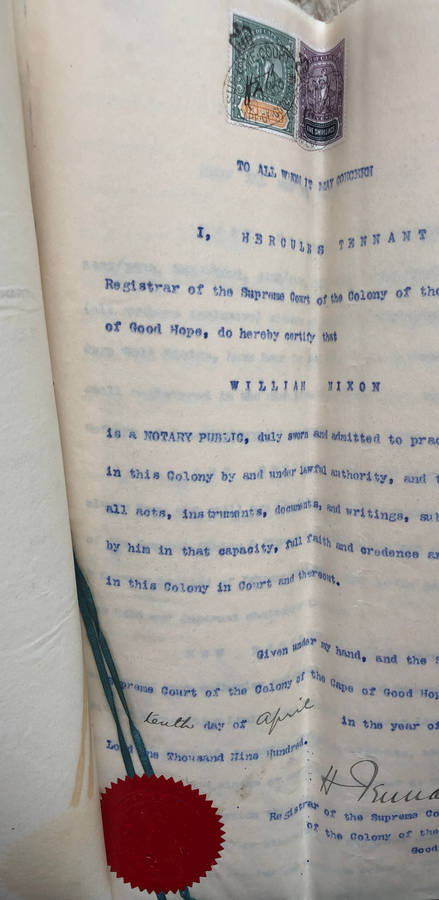 FIVE SHILLINGS
TO ALL WHOM IT MAY CONCERN
I, HERCULES TENNANT
Registrar of the Supreme Court of the Colony of the
of Good Hope, do hereby certify that
WILLIAM NIXON
is a NOTARY PUBLIC, duly sworn and admitted to prac
in this Colony by and under lawful authority, and t
all acts, instruments, documents, and writings, sub
by him in that capacity, full faith and credence ar
in this Colony in Court and thereout.
Given under my hand, and the S
Supreme Court of the Colony of the Cape of Good Hop
tenth day of April in the year of
Lord One Thousand Nine Hundred.
H Tenna
Registrar of the Supreme Co
of the Colony of the
Good